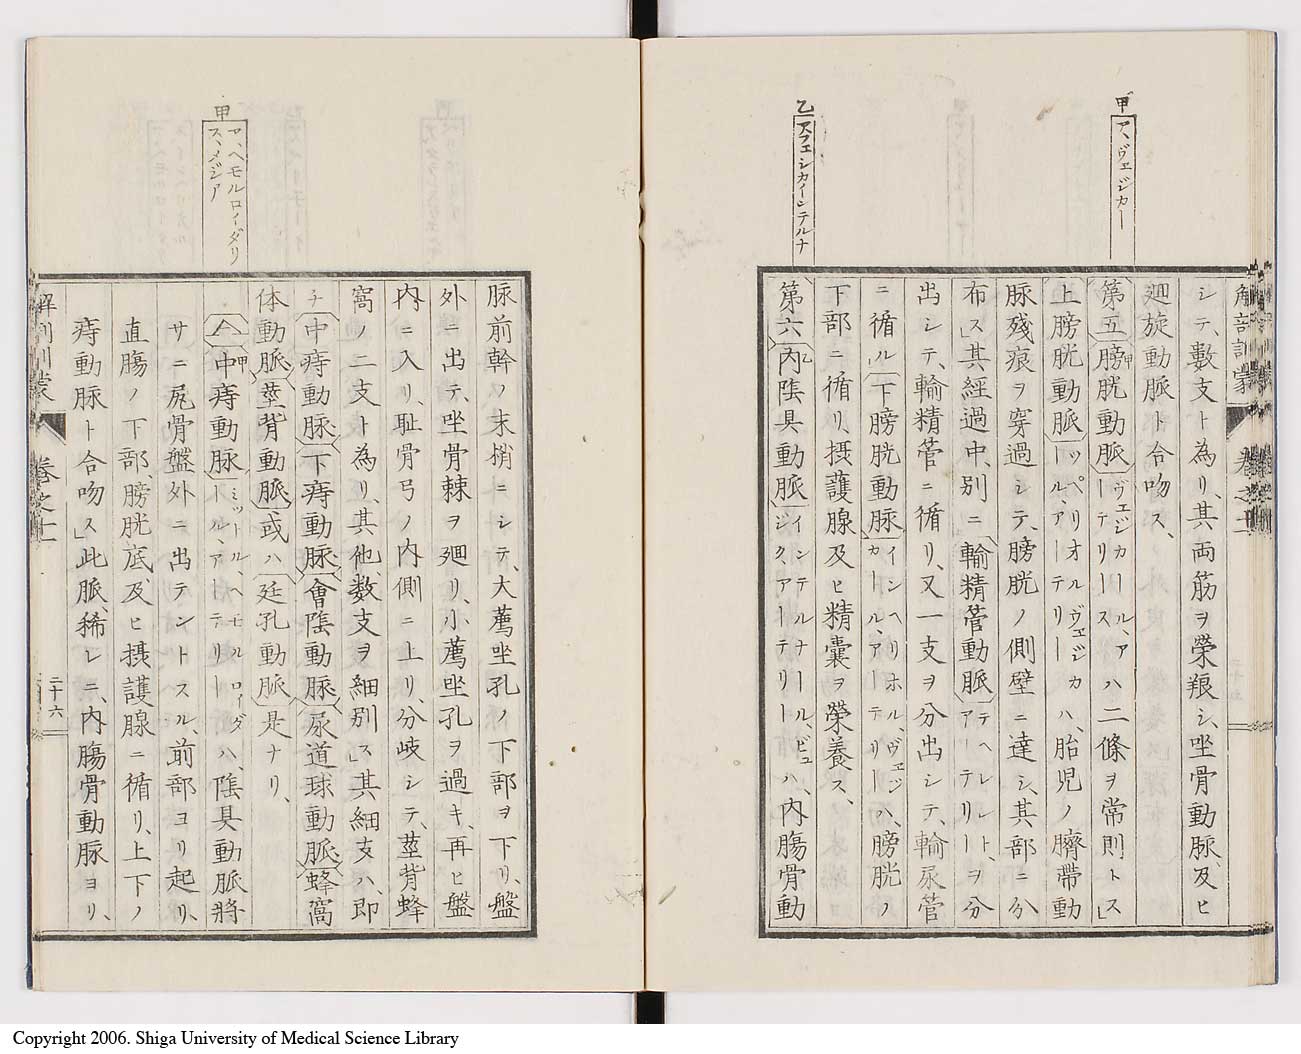 甲
ア、ヴェジカー
乙
ア、フェシカインテルナ
解剖訓蒙
シテ、數支ト為リ、其両筋ヲ榮粮シ、坐骨動脈、及ヒ
廻旋動脈ト合吻ス、
第五膀胱動脈ヴェジカール、アーテリースハ二條ヲ常則トス」
上膀胱動脈ッペリオルヴェジカール、アーテリーハ、胎児ノ臍帶動
脈殘痕ヲ穿過シテ、膀胱ノ側壁ニ達シ、其部ニ分
布ス」其經過中、別ニ輸精菅動脈デヘレント、アーテリーヲ分
出シテ、輸精管ニ循リ、又一支ヲ分出シテ、輸尿管
ニ循ル」下膀胱動脉インヘリホル、ヴェジカール、アーテリーハ、膀胱ノ
下部ニ循リ、摂護腺及ヒ精囊ヲ榮養ス、
第六内陰具動脈インテルナール、ピュジク、アーテリーハ、内腸骨動
甲
ア、ヘモルロイダリ
ス、メジア
脉前幹ノ末梢ニシテ、大薦坐孔ノ下部ヲ下リ、盤
外ニ出テ、坐骨棘ヲ廻リ、小薦坐孔ヲ過キ、再ヒ盤
内ニ入リ、耻骨弓ノ内側ニ上リ、分岐シテ、莖背蜂
窩ノ二支ト為リ、其他、數支ヲ細別ス」其細支ハ、即
チ中痔動脉下痔動脈會陰動脉尿道球動脈蜂窩
体動脈莖背動脈、或ハ廷孔動脈是ナリ、
A中痔動脉ミットル、ヘモルロイダール、アーテリーハ、陰具動脈將
サニ尻骨盤外ニ出テントスル、前部ヨリ起リ、
直腸ノ下部、膀胱底、及ヒ摂護腺ニ循リ、上下ノ
痔動脉ト合吻ス」此脈、稀レニ、内腸骨動脉ヨリ、
解剖訓蒙
卷之十一
二十六
Copyright 2006. Shiga University of Medical Science Library